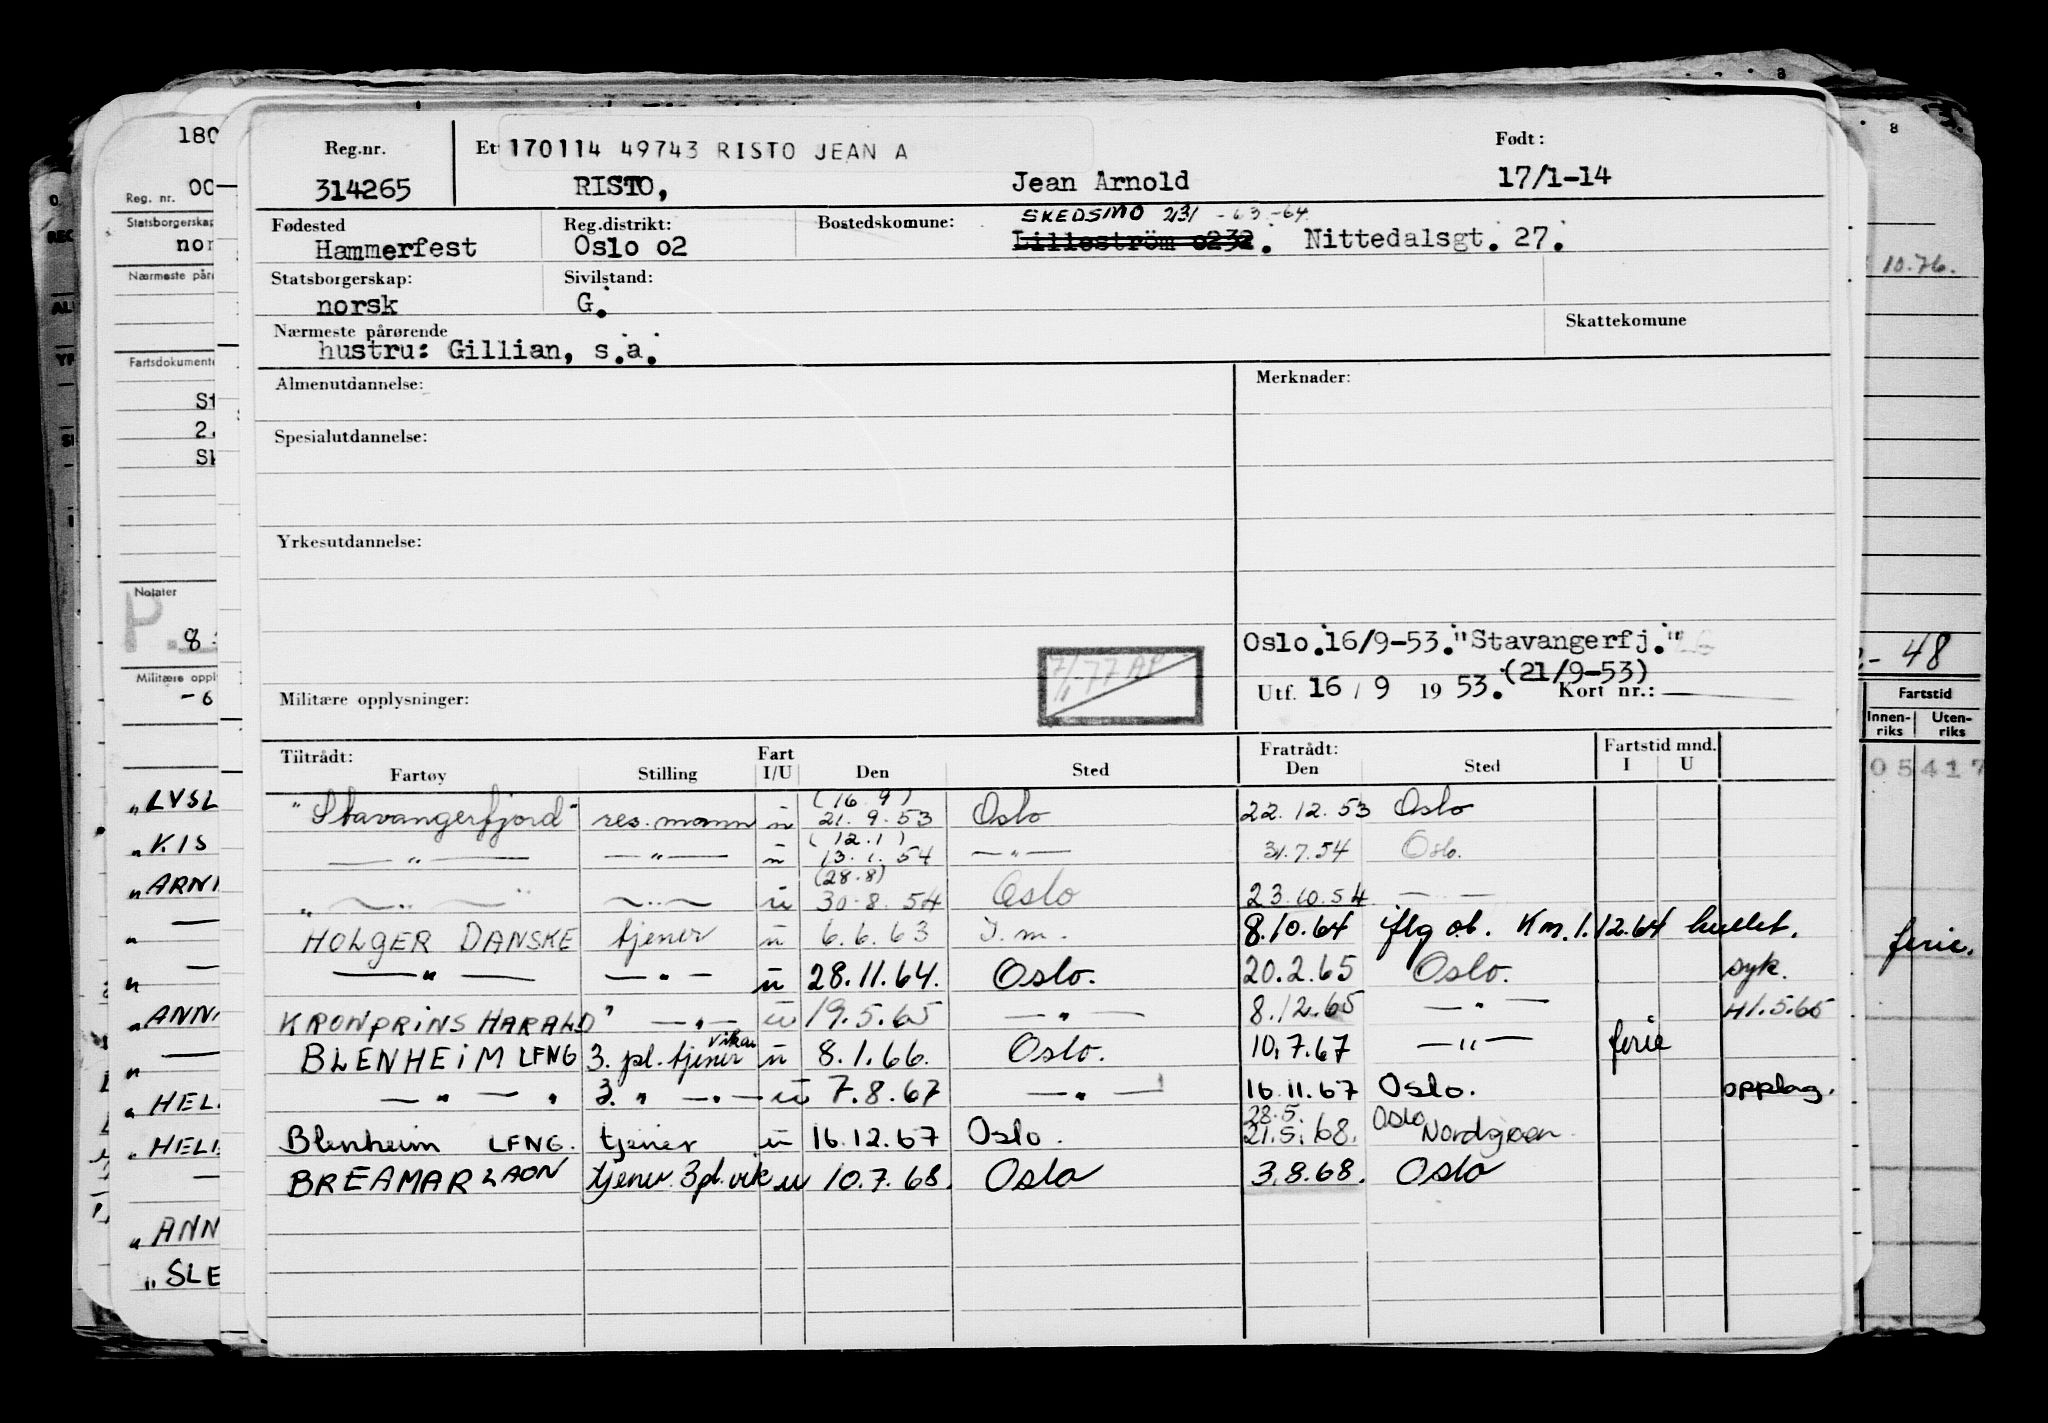 Reg.nr. Et 170114 49743 RISTO JEAN A Født:
314265 RISTO, Jean Arnold 17/1-14
Fødested Reg.distrikt: Bostedskomune: SKEDSMO 231 -63-64
Hammerfest Oslo 02 Lilleström 0232. Nittedalsgt. 27.
Statsborgerskap: Sivilstand:
norsk G.
Nærmeste pårørende Skattekomune
hustru: Gillian, s.a.
Almenutdannelse: Merknader:
Spesialutdannelse:
Yrkesutdannelse:
Oslo.16/9-53."Stavangerfj."
7/1-77 AP (21/9-53)
Militære opplysninger: Utf. 16 / 9 19 53. Kort nr.:
Tiltrådt: Fart Fratrådt: Fartstid mnd.
Fartøy Stilling I/U Den Sted Den Sted I U
(16.9)
"Stavangerfjord" res. mann u 21.9.53 Oslo 22.12.53 Oslo
(12.1)
— " — — " — u 13.1.54 — " — 31.7.54 Oslo.
(28.8)
" — " — — " — u 30.8.54 Oslo 23.10.54 — —
HOLGER DANSKE tjener u 6.6.63 J.m. 8.10.64 iflg ob. Km. 1.12.64 hullet.
— " — — " — u 28.11.64. Oslo. 20.2.65 Oslo. syk.
KRONPRINS HARALD " — " — u 19.5.65 — " — 8.12.65 — " — 41.5.65
BLENHEIM LFNG 3. pl. tjener vikar u 8.1.66. Oslo. 10.7.67 — " — ferie
— " — " 3. " — " — u 7.8.67 — " — 16.11.67 Oslo. opplag.
28.5. Oslo
Blenheim LFNG. tjener u 16.12.67 Oslo. 21.5.68. Nordsjøen
BREAMAR LAON tjener 3pl. vik u 10.7.68. Oslo 3.8.68. Oslo
180
Reg. nr. 00
Statsborgerskap
nor
Nærmeste pår
Fartsdokumente
St
2.
Sk
Notater
P.
8
Militære oppl
- 6
"LVSL
"KIS
"ARNI
"
"
"ANN
"
"HEL
"HELI
"ANN
"SLE
8
10.76.
- 48
Fartstid
Innen-
riks
Uten-
riks
05417
ferie.